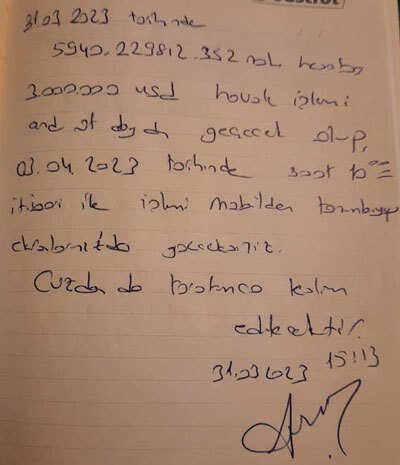 Castrol
31.03 2023 tarihinde
5940.229812.352 nolu hesaba
3.000.000 usd havale işlemi
and geçecek olup,
03.04.2023 tarihinde saat 10⁰⁰
itibari ile işlemi mobilden tanımlayıp
göreceksiniz.
Cüzdan da kalım
edilecektir.
31.03 2023 15:13